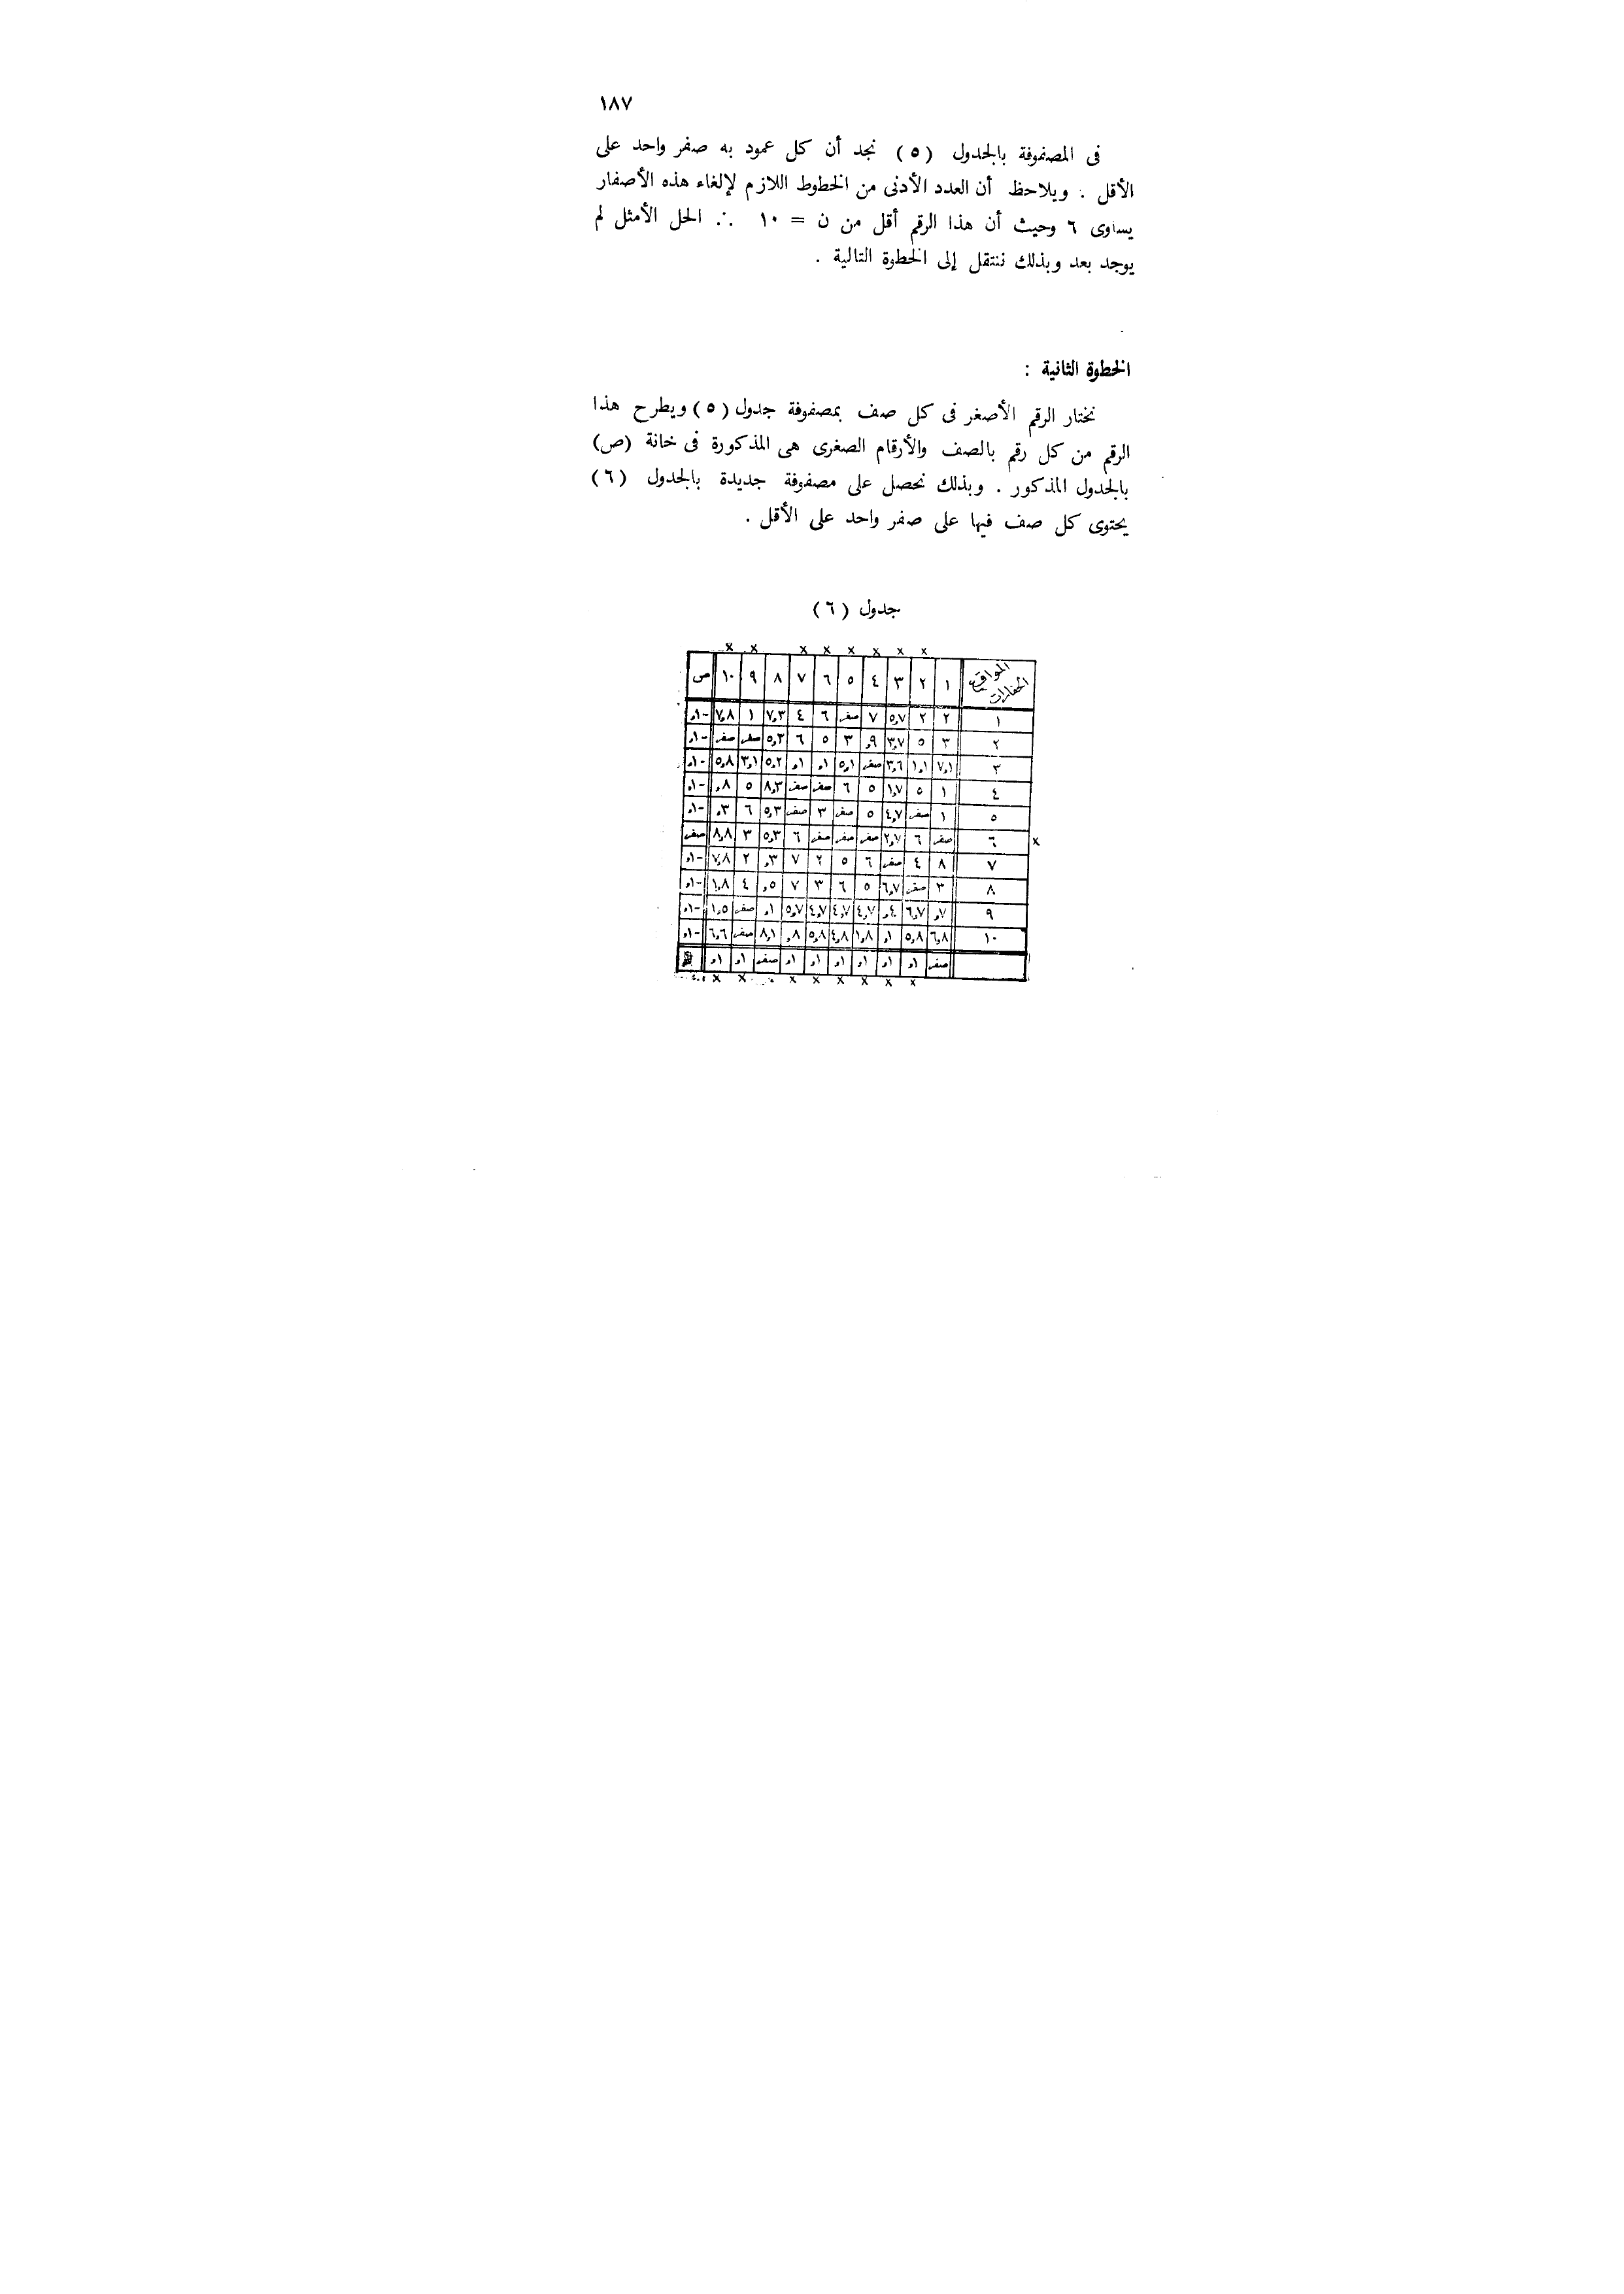 ١٨٧
فى المصفوفة بالجدول (٥) نجد أن كل عمود به صفر واحد على
الأقل . ويلاحظ أن العدد الأدنى من الخطوط اللازم لإلغاء هذه الأصفار
يساوى ٦ وحيث أن هذا الرقم أقل من ن = ١٠ ∴ الحل الأمثل لم
يوجد بعد وبذلك ننتقل إلى الخطوة التالية .
الخطوة الثانية :
نختار الرقم الأصغر فى كل صف بمصفوفة جدول (٥) ويطرح هذا
الرقم من كل رقم بالصف والأرقام الصغرى هى المذكورة فى خانة (ص)
بالجدول المذكور . وبذلك نحصل على مصفوفة جديدة بالجدول (٦)
يحتوى كل صف فيها على صفر واحد على الأقل .
جدول (٦)
x x x x x x x x
المواقع الحفارات ١ ٢ ٣ ٤ ٥ ٦ ٧ ٨ ٩ ١٠ ص
١ ٢ ٢ ٥,٧ ٧ صفر ٦ ٤ ٧,٣ ١ ٧,٨ -,١
٢ ٣ ٥ ٣,٧ ,٩ ٣ ٥ ٦ ٥,٣ صفر صفر -,١
٣ ٧,١ ١,١ ٣,٦ صفر ٥,١ ,١ ,١ ٥,٢ ٣,١ ٥,٨ -,١
٤ ١ ٥ ١,٧ ٥ ٦ صفر صفر ٨,٣ ٥ ,٨ -,١
٥ ١ صفر ٤,٧ ٥ صفر ٣ صفر ٥,٣ ٦ ,٣ -,١
x ٦ صفر ٦ ٢,٧ صفر صفر صفر ٦ ٥,٣ ٣ ٨,٨ صفر
٧ ٨ ٤ صفر ٦ ٥ ٢ ٧ ,٣ ٢ ٧,٨ -,١
٨ ٣ صفر ٦,٧ ٥ ٦ ٣ ٧ ,٥ ٤ ١,٨ -,١
٩ ,٧ ٦,٧ ,٤ ٤,٧ ٤,٧ ٤,٧ ٥,٧ ,١ صفر ١,٥ -,١
١٠ ٦,٨ ٥,٨ ,١ ١,٨ ٤,٨ ٥,٨ ,٨ ٨,١ صفر ٦,٦ -,١
صفر ,١ ,١ ,١ ,١ ,١ ,١ صفر ,١ ,١
x x x x x x x x